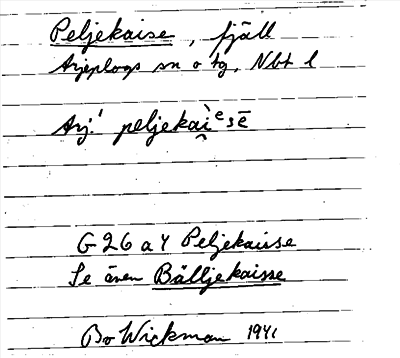 Peljekaise, fjäll
Arjeplogs sn o tg, Nbt l
Arj.! peljekài̯ᵉsē
G 26 a 4 Peljekaisse
Se även Bälljekaisse
Bo Wickman 1941